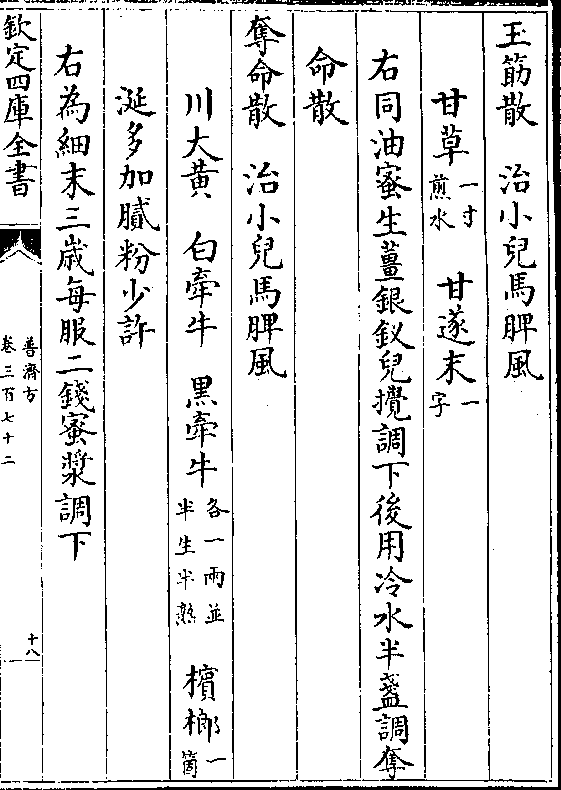 玉筯散　治小兒馬脾風
甘草一寸煎水　甘遂末一字
右同油蜜生薑銀釵兒攪調下後用冷水半盞調奪
命散
奪命散　治小兒馬脾風
川大黃　白牽牛　黑牽牛各一兩並半生半熟　檳榔一箇
涎多加膩粉少許
右為細末三歲每服二錢蜜漿調下
欽定四庫全書　普濟方卷三百七十二　十八